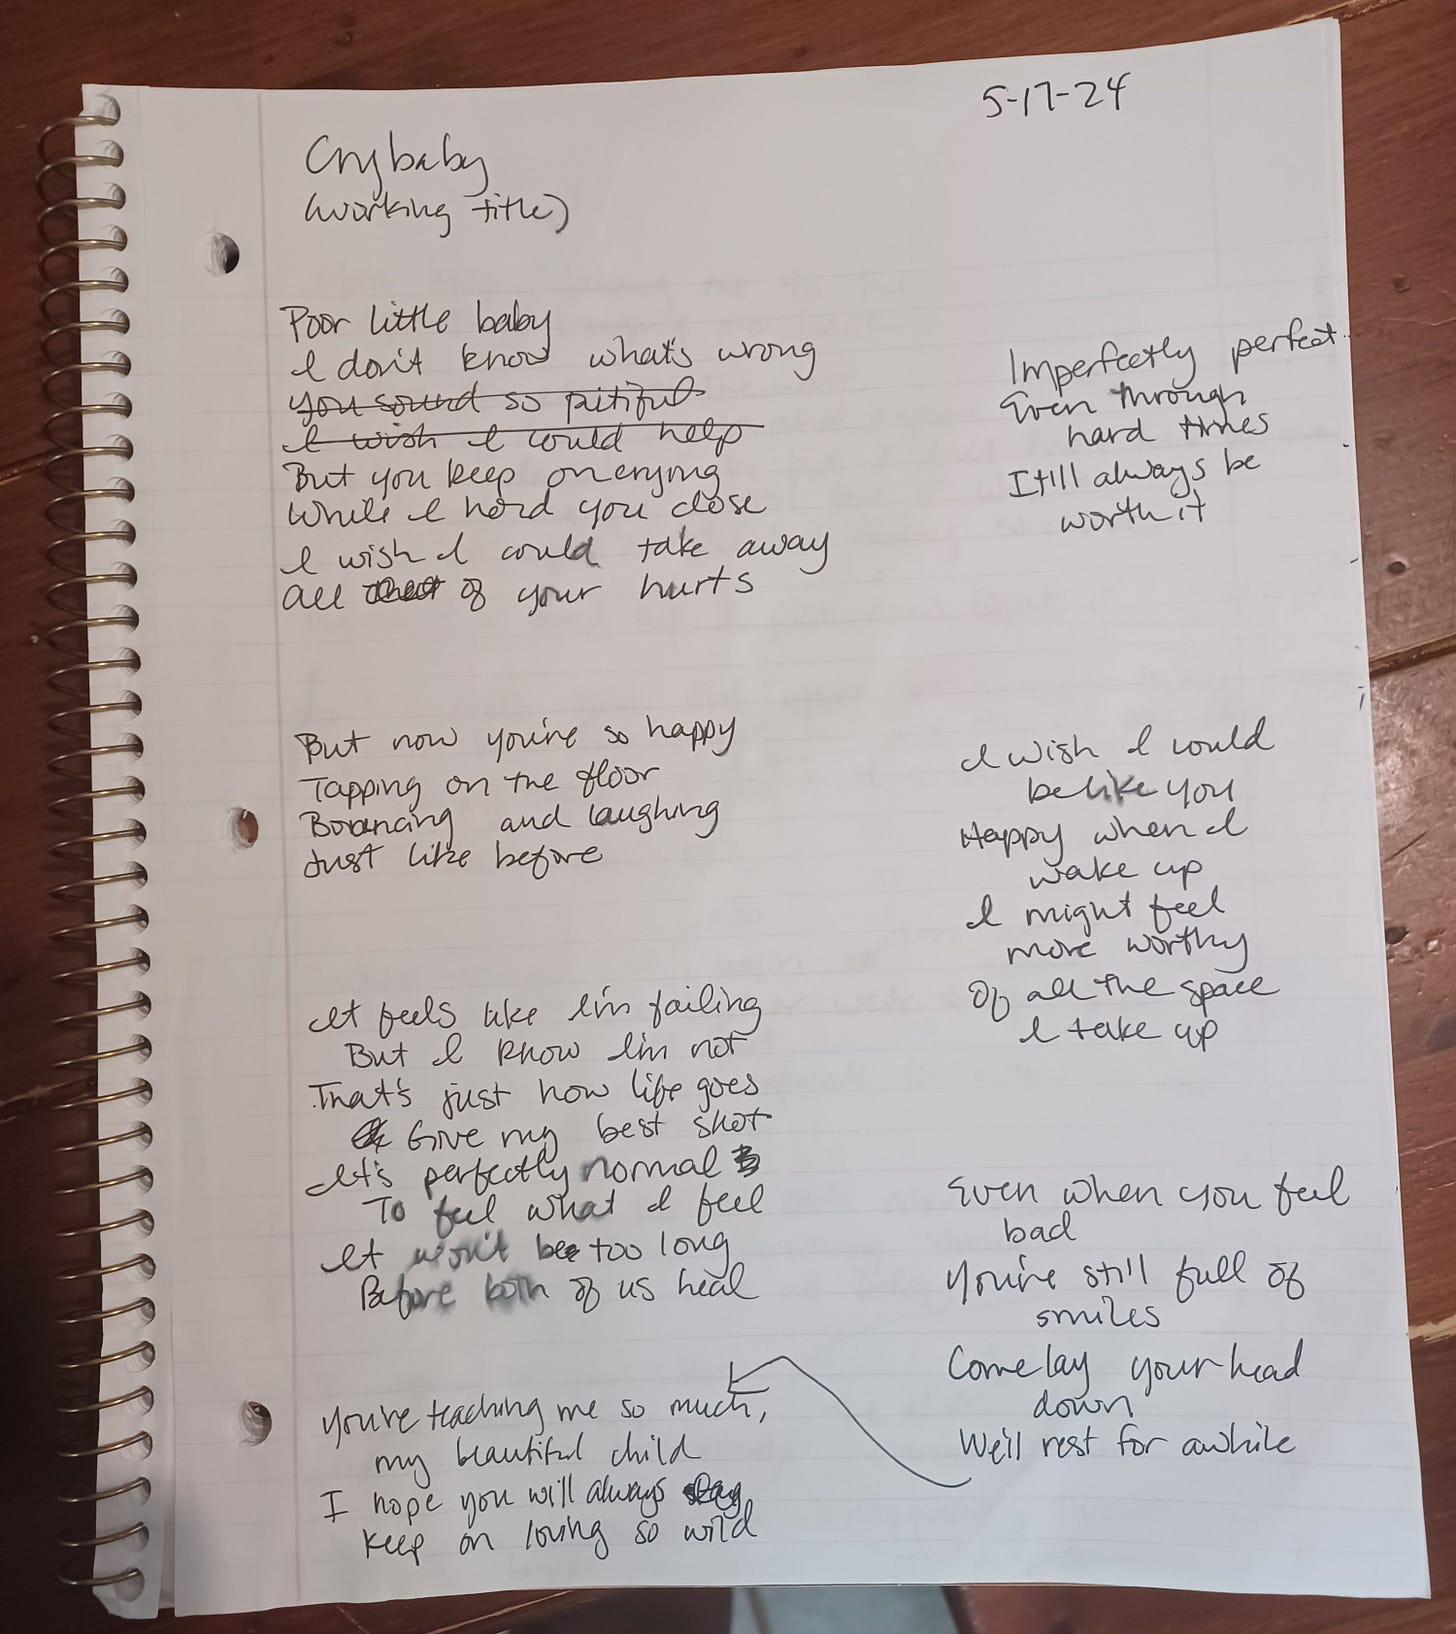 5-17-24
Crybaby
(working title)
Poor little baby
I don't know what's wrong
you sound so pitiful
I wish I could help
But you keep on crying
While I hold you close
I wish I could take away
All of your hurts
But now you're so happy
Tapping on the floor
Bouncing and laughing
Just like before
It feels like I'm failing
But I know I'm not
That's just how life goes
Give my best shot
It's perfectly normal
To feel what I feel
It won't be too long
Before both of us heal
You're teaching me so much,
my beautiful child
I hope you will always stay
keep on loving so wild
Imperfectly perfect
Even through
hard times
It'll always be
worth it
I wish I could
be like you
Happy when I
wake up
I might feel
more worthy
Of all the space
I take up
Even when you feel
bad
You're still full of
smiles
Come lay your head
down
We'll rest for awhile